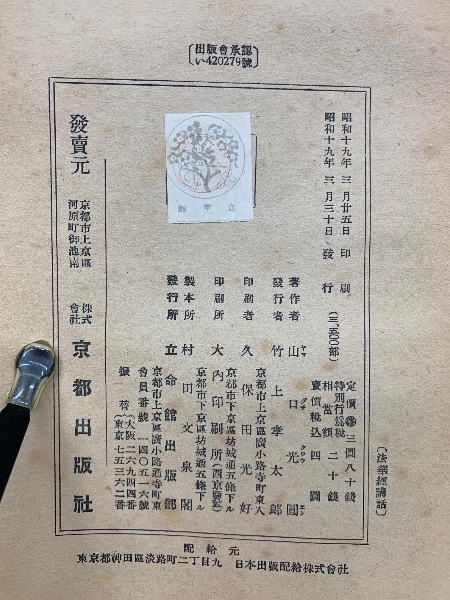 〔出版會承認
い420279號〕
〔法華經講話〕
定價㊞三圓八十錢
特別行爲稅
相當額 二十錢
賣價稅込 四圓
昭和十九年 三月廿五日 印刷
昭和十九年 三月三十日 發行
(三、五〇〇部)
著作者 山口光圓
ヤマ グチ クワウ エン
京都市上京區廣小路寺町東入
發行者 竹上孝太郎
印刷者 久保田光好
京都市下京區坊城通五條下ル
印刷所 大內印刷所
京都市下京區坊城通五條下ル
製本所 村田文泉閣
京都市上京區廣小路通寺町東
發行所 立命館出版部
會員番號 一四〇五一六號
振替 (大阪二六九四四番
東京七五三六二番
發賣元 京都市上京區
河原町御池南
株式
會社 京都出版社
配給元
東京都神田區淡路町二丁目九 日本出版配給株式會社